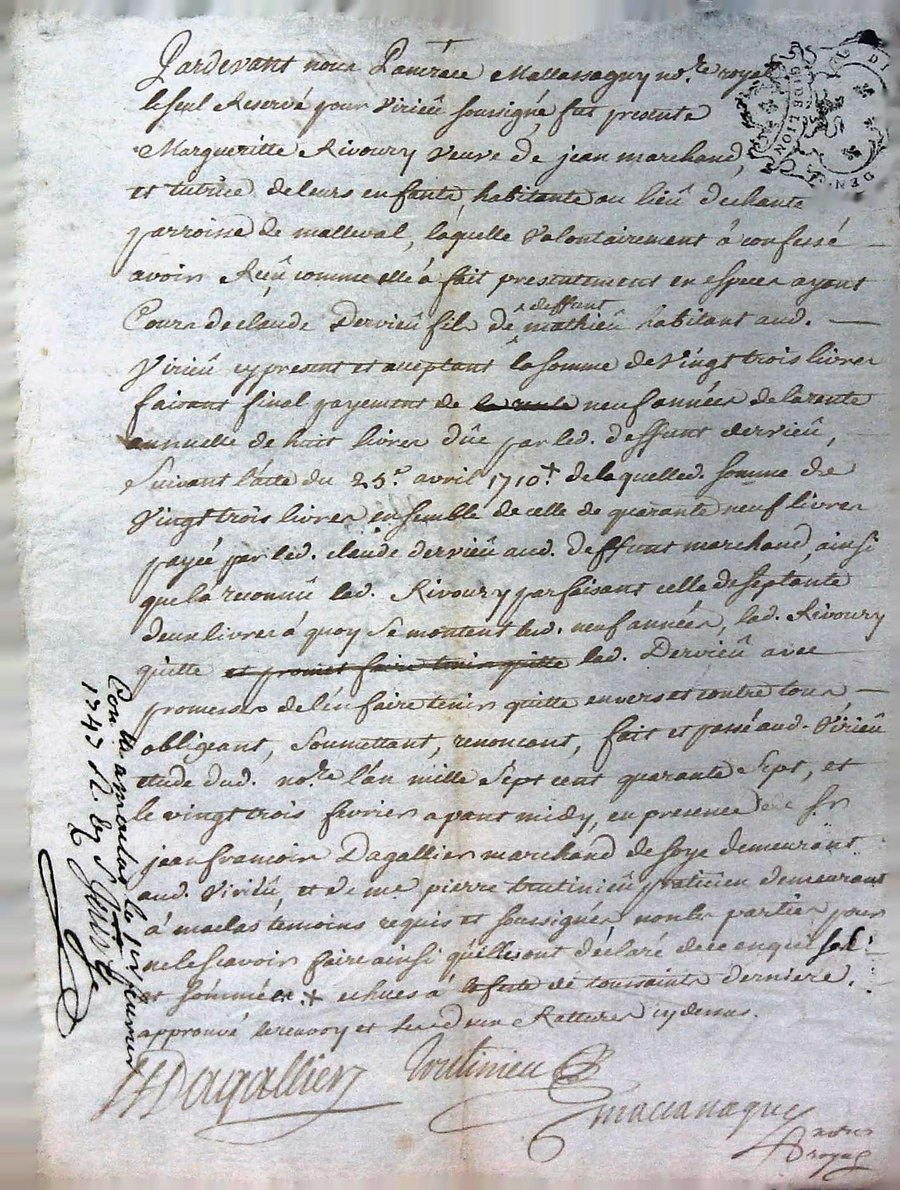 Pardevant nous Pancrace Mallassagny no.re royal
le seul Reservé pour Virieü soussigné fut presente
Margueritte Rivoury veuve de jean marchand,
et tutrice de leurs enfants, habitante au lieü de chante
parroisse de malleval, laquelle volontairement à confessé
avoir Reçü comme elle à fait presentement en especes ayant
Cours de claude Dervieü fils de deffunt mathieü habitant aud.
Virieü cy present et acceptant la somme de vingt trois livres
faisant final payement de la rente neuf années de la rente
annuelle de huit livres düe par led. deffunt dervieü,
suivant l'acte du 25.e avril 1710. + de laquelle d. somme de
vingt trois livres ensemble de celle de quarante neuf livres
payée par led. claude dervieü aud. deffunt marchand, ainsi
que la reconnü lad. Rivoury parfaisant celle de septante
deux livres à quoy se montent lesd. neuf années, lad. Rivoury
quitte et promet faire tenir quitte led. Dervieü avec
promesse de l'en faire tenir quitte envers et contre tous
obligeant, soumettant, renoncant, fait et passé aud. Virieü
etude dud. no.re l'an mille sept cent quarante sept, et
le vingt trois fevrier apant midy, en presence de sr
jean francois Dagallier marchand de soye demeurant
aud. Virieü, et de me pierre trutinieü praticien demeurant
à maclas temoins requis et soussignés, non les parties pour
ne le scavoir faire ainsi qu'elles ont declaré de ce enquises
et sommées. + echues à la feste de toussaints derniere.
approuvé le renvoy et les deux Rattures cy dessus.
JF Dagallier Trutinieu
Mallassagny
no.re
royal
Con.lle a maclas le 1er fevrier
1747 R.
GIDE LION
DEN